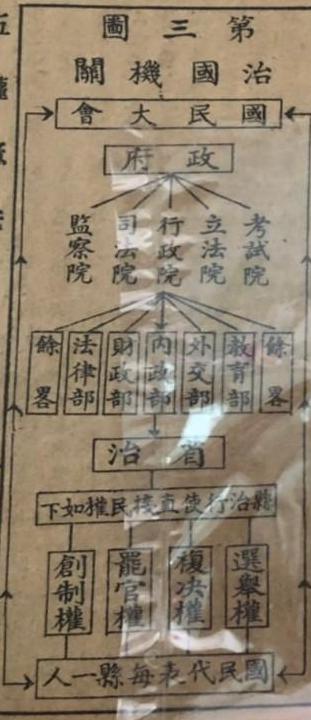 第三圖
治國機關
國民大會
政府
考試院
立法院
行政院
司法院
監察院
餘畧
教育部
外交部
內政部
財政部
法律部
餘畧
省治
縣治行使直接民權如下
選舉權
複决權
罷官權
創制權
國民代表每縣一人